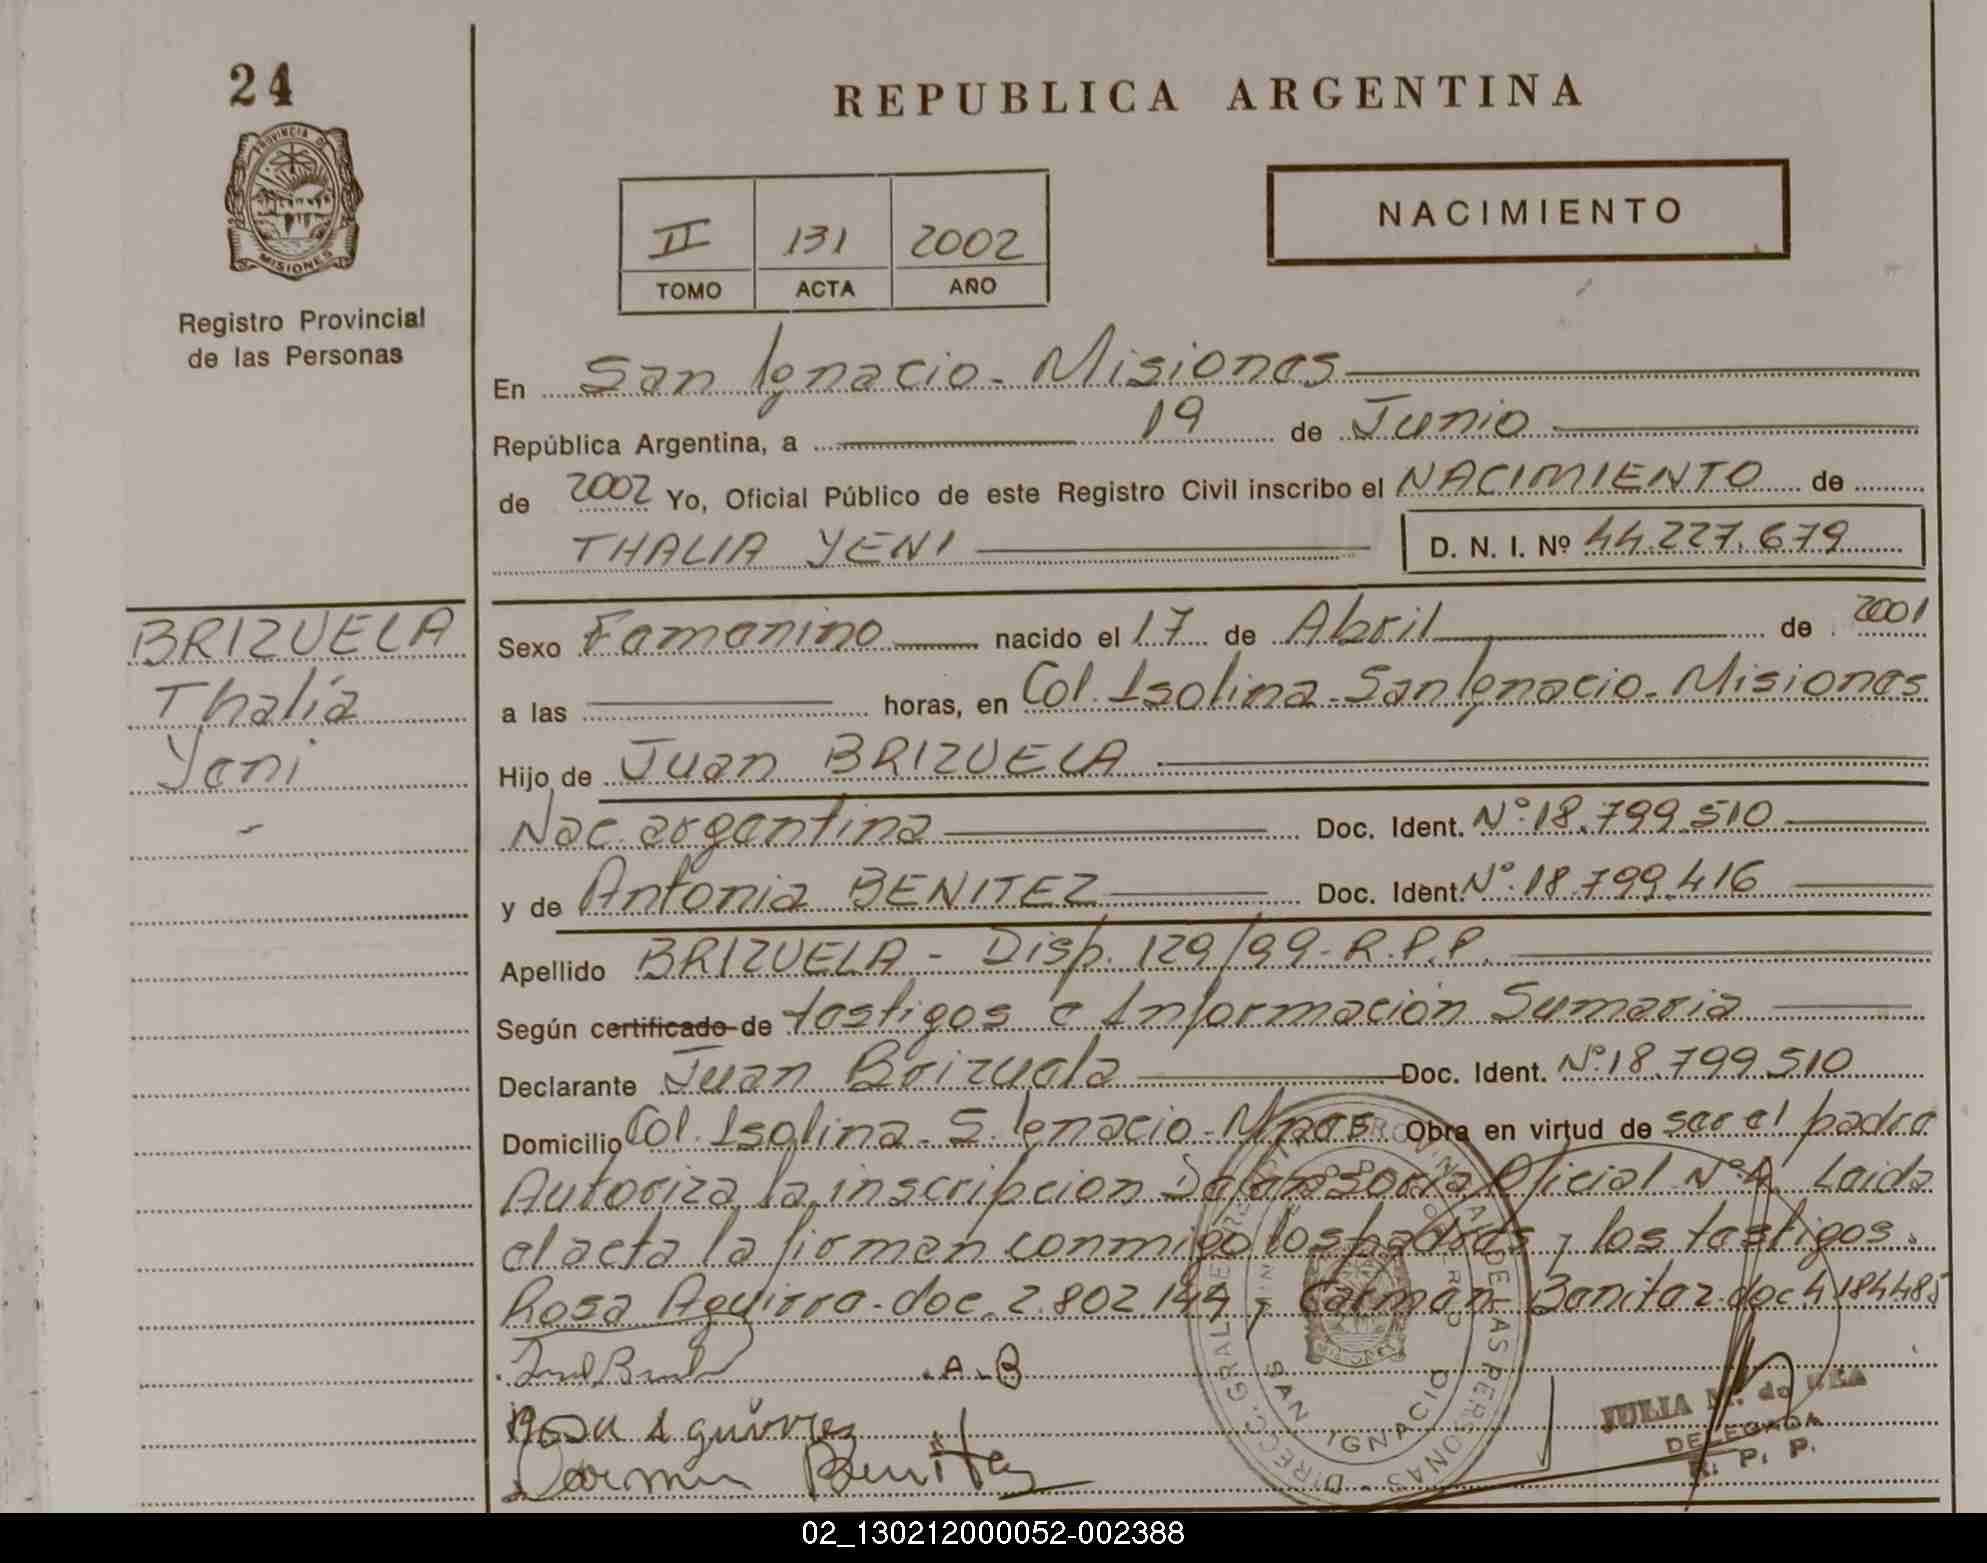 24
REPUBLICA ARGENTINA
PROVINCIA DE
MISIONES
Registro Provincial
de las Personas
II 131 2002
TOMO ACTA AÑO
NACIMIENTO
En San Ignacio - Misiones
República Argentina, a 19 de Junio
de 2002 Yo, Oficial Público de este Registro Civil inscribo el NACIMIENTO de
THALIA YENI D. N. I. Nº 44.227.679
BRIZUELA
Thalía
Yeni
Sexo Femenino nacido el 17 de Abril de 2001
a las horas, en Col. Isolina - San Ignacio - Misiones
Hijo de Juan BRIZUELA
Nac. argentina Doc. Ident. Nº 18.799.510
y de Antonia BENITEZ Doc. Ident. Nº 18.799.416
Apellido BRIZUELA - Disp. 129/99 - R.P.P.
Según certificado de testigos e Información Sumaria
Declarante Juan Brizuela Doc. Ident. Nº 18.799.510
Domicilio Col. Isolina - S. Ignacio - Mnes Obra en virtud de ser el padre
Autoriza la inscripcion Defensoria Oficial Nº 4. Leida
el acta la firman conmigo los padres y los testigos.
Rosa Aguirre - doc. 2.802.144 y Carmen Benitez doc 4184485
. A . B
Rosa Aguirrez
Carmen Benitez
DIRECC. GRAL. DE REGISTRO PROVINCIAL DE LAS PERSONAS
SAN IGNACIO
JULIA M. de
DELEGADA
R. P. P.
02_130212000052-002388